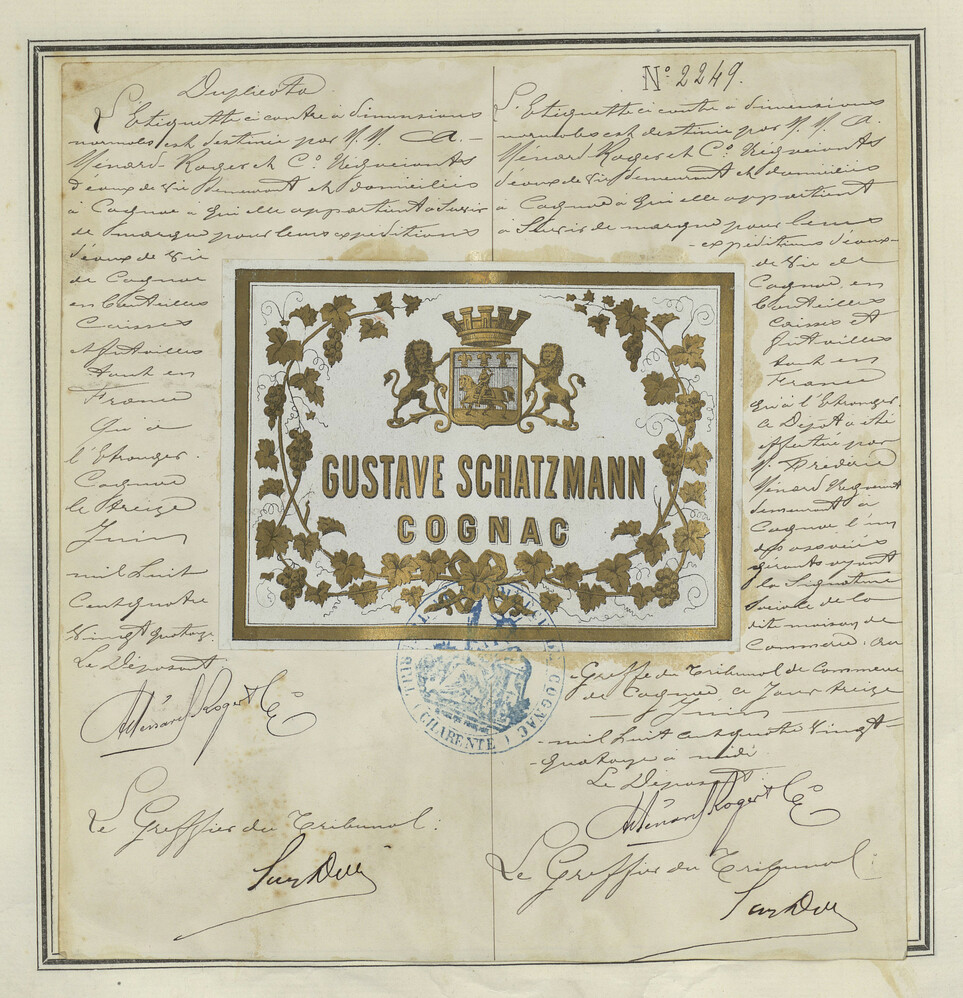 Duplicata
L'Etiquette ci contre à dimensions
normales est destinée par M. M. A.
Ménard Roger et Co. Négociants
d'eaux de vie demeurant et domiciliés
à Cognac à qui elle appartient à Servir
de marque pour leurs expéditions
d'eaux de vie
de Cognac
en bouteilles
Caisses
et futailles
tant en
France
qu'à
l'Etranger.
Cognac
le treize
Juin
mil huit
cent quatre
vingt quatorze
Le Déposant
A Ménard Roger & Cie
Le Greffier du Tribunal:
No. 2249.
L'Etiquette ci contre à dimensions
normales est destinée par M. M. A.
Ménard Roger et Co. Négociants
d'eaux de vie demeurant et domiciliés
à Cognac à qui elle appartient
à Servir de marque pour leurs
expéditions d'eaux
de vie de
Cognac en
bouteilles
caisses et
futailles
tant en
France
qu'à l'Etranger.
Ce Dépôt a été
effectué par
M. Frédéric
Ménard Négociant
demeurant à
Cognac l'un
des associés
gérants ayant
la Signature
Sociale de la
dite maison de
Commerce. au
Greffe du Tribunal de Commerce
de Cognac ce Jour treize
Juin
mil huit cent quatre vingt
quatorze à midi
Le Déposant
A Ménard Roger & Cie
Le Greffier du Tribunal:
GUSTAVE SCHATZMANN
COGNAC
COGNAC
(CHARENTE)